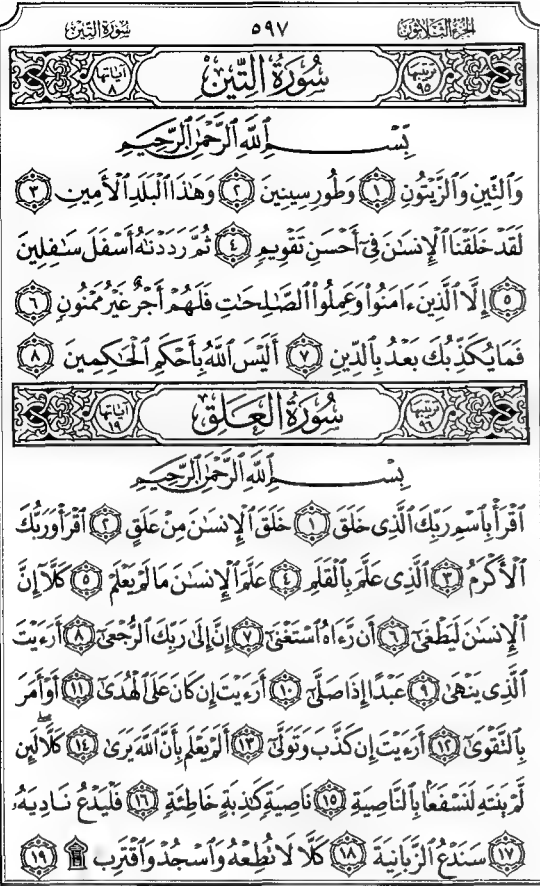 الجزء الثلاثون ٥٩٧ سورة التين
ترتيبها ٩٥ سُورَةُ التِّينِ آياتها ٨
بِسْمِ ٱللَّهِ ٱلرَّحْمَٰنِ ٱلرَّحِيمِ
وَٱلتِّينِ وَٱلزَّيْتُونِ ١ وَطُورِ سِينِينَ ٢ وَهَٰذَا ٱلْبَلَدِ ٱلْأَمِينِ ٣
لَقَدْ خَلَقْنَا ٱلْإِنسَٰنَ فِىٓ أَحْسَنِ تَقْوِيمٍ ٤ ثُمَّ رَدَدْنَٰهُ أَسْفَلَ سَٰفِلِينَ
٥ إِلَّا ٱلَّذِينَ ءَامَنُوا۟ وَعَمِلُوا۟ ٱلصَّٰلِحَٰتِ فَلَهُمْ أَجْرٌ غَيْرُ مَمْنُونٍ ٦
فَمَا يُكَذِّبُكَ بَعْدُ بِٱلدِّينِ ٧ أَلَيْسَ ٱللَّهُ بِأَحْكَمِ ٱلْحَٰكِمِينَ ٨
ترتيبها ٩٦ سُورَةُ العَلَقِ آياتها ١٩
بِسْمِ ٱللَّهِ ٱلرَّحْمَٰنِ ٱلرَّحِيمِ
ٱقْرَأْ بِٱسْمِ رَبِّكَ ٱلَّذِى خَلَقَ ١ خَلَقَ ٱلْإِنسَٰنَ مِنْ عَلَقٍ ٢ ٱقْرَأْ وَرَبُّكَ
ٱلْأَكْرَمُ ٣ ٱلَّذِى عَلَّمَ بِٱلْقَلَمِ ٤ عَلَّمَ ٱلْإِنسَٰنَ مَا لَمْ يَعْلَمْ ٥ كَلَّآ إِنَّ
ٱلْإِنسَٰنَ لَيَطْغَىٰٓ ٦ أَن رَّءَاهُ ٱسْتَغْنَىٰٓ ٧ إِنَّ إِلَىٰ رَبِّكَ ٱلرُّجْعَىٰٓ ٨ أَرَءَيْتَ
ٱلَّذِى يَنْهَىٰ ٩ عَبْدًا إِذَا صَلَّىٰٓ ١٠ أَرَءَيْتَ إِن كَانَ عَلَى ٱلْهُدَىٰٓ ١١ أَوْ أَمَرَ
بِٱلتَّقْوَىٰٓ ١٢ أَرَءَيْتَ إِن كَذَّبَ وَتَوَلَّىٰٓ ١٣ أَلَمْ يَعْلَم بِأَنَّ ٱللَّهَ يَرَىٰ ١٤ كَلَّا لَئِن
لَّمْ يَنتَهِ لَنَسْفَعًۢا بِٱلنَّاصِيَةِ ١٥ نَاصِيَةٍ كَٰذِبَةٍ خَاطِئَةٍ ١٦ فَلْيَدْعُ نَادِيَهُۥ
١٧ سَنَدْعُ ٱلزَّبَانِيَةَ ١٨ كَلَّا لَا تُطِعْهُ وَٱسْجُدْ وَٱقْتَرِب ۩ ١٩